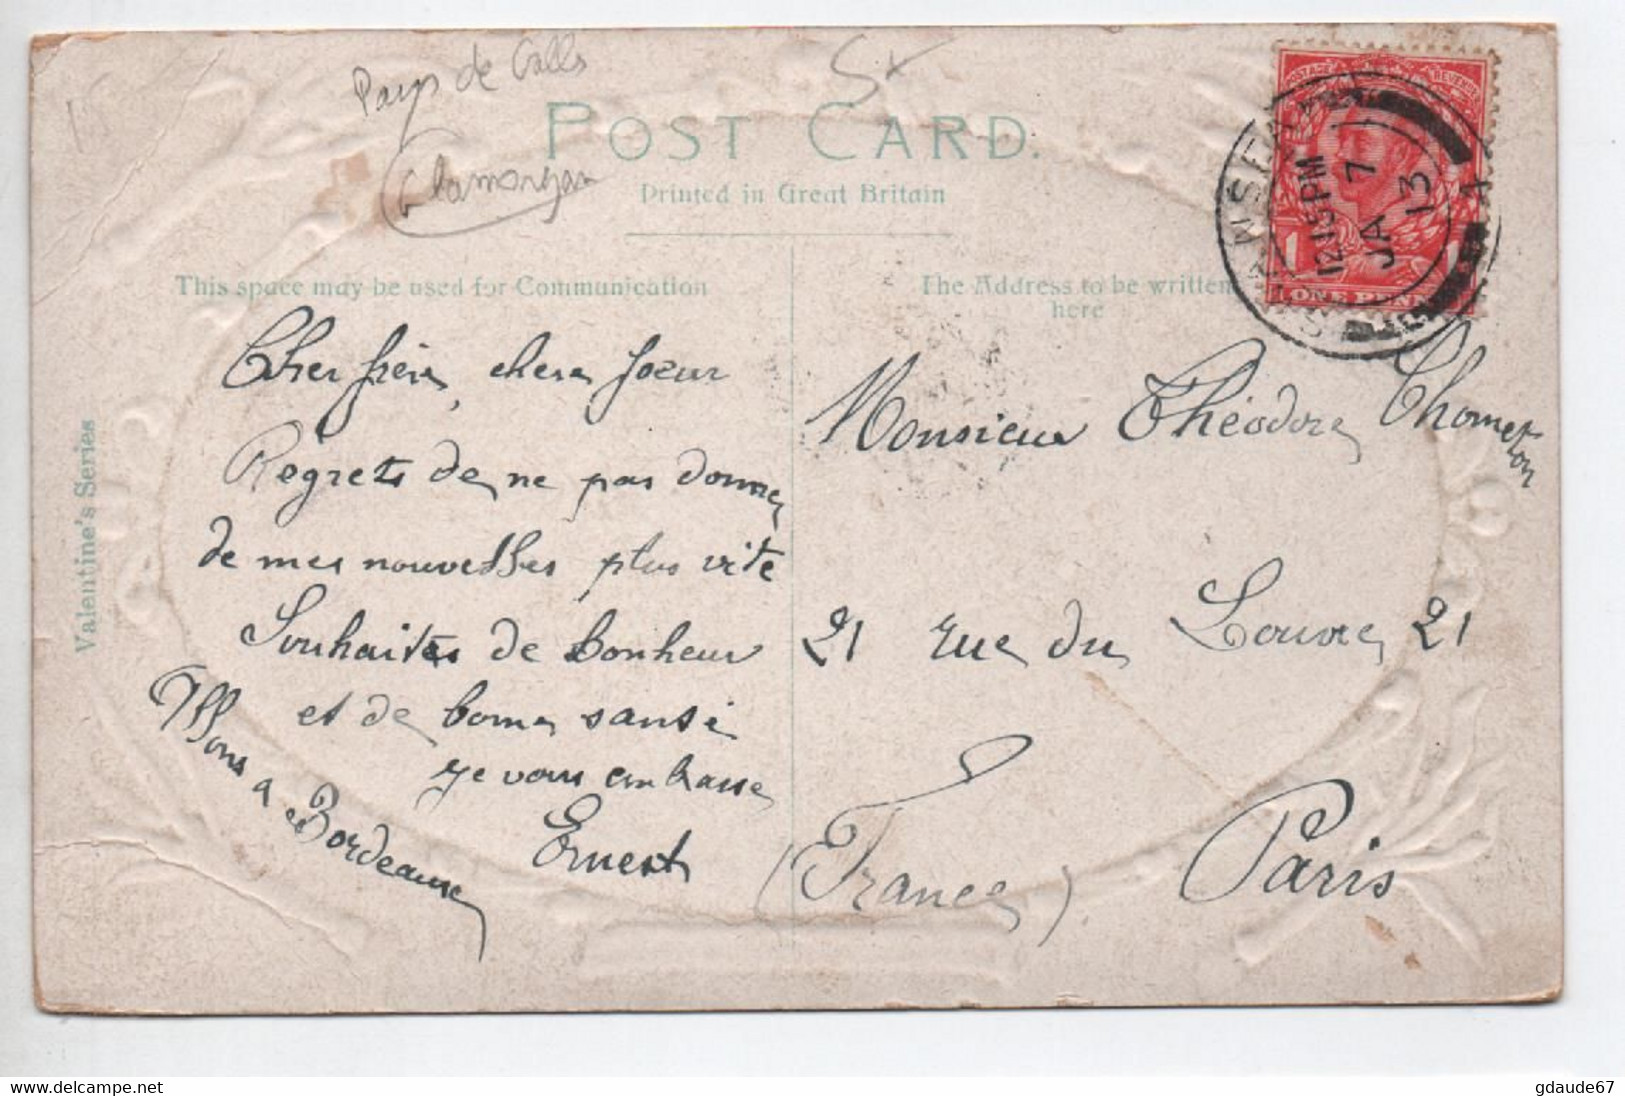 Pays de Galles
Glamorgan
POST CARD.
Printed in Great Britain
This space may be used for Communication
The Address to be written
here
Valentine's Series
POSTAGE REVENUE
1 1
ONE PENNY
SWANSEA
12.15 PM
7 JA
13
Cher frère, chère soeur
Regrets de ne pas donner
de mes nouvelles plus vite
Souhaites de bonheur
et de bonne santé
je vous embrasse
Ernest
a Bordeaux
Monsieur Théodore Thometon
21 rue du Louvre 21
Paris
(France)
delcampe.net
gdaude67